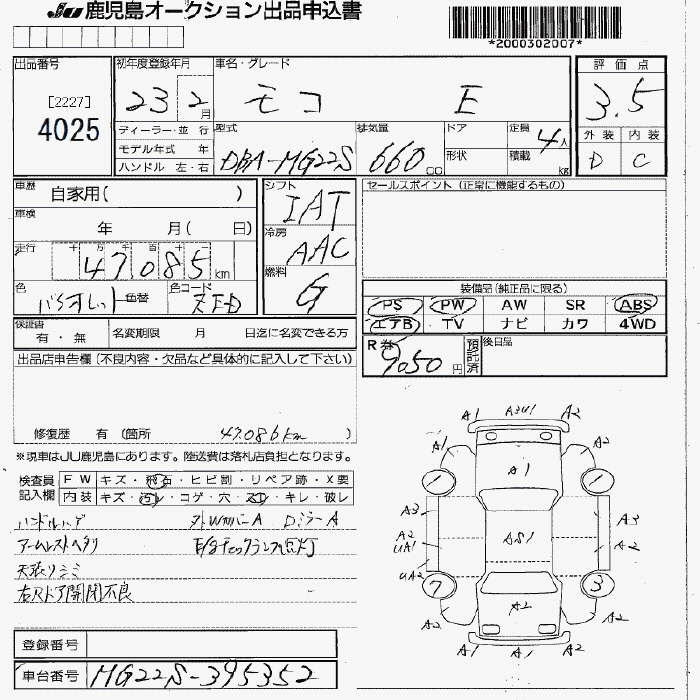 JU 鹿児島オークション出品申込書
*2000302007*
出品番号
[2227]
4025
初年度登録年月
23 2月
車名・グレード
モコ E
評価点
3.5
外装 内装
D C
ディーラー・並 行
モデル年式 年
ハンドル 左・右
型式
DBA-MG22S
排気量
660 cc
ドア
形状
定員
4人
積載
kg
車歴
自家用( )
車検
年 月( 日)
走行
十 万 千 百 十 一
47085 km
色
バイオレット 色替
色コード
ZED
シフト
IAT
冷房
AAC
燃料
G
セールスポイント (正常に機能するもの)
装備品(純正品に限る)
PS PW AW SR ABS
エアB TV ナビ カワ 4WD
R券
9050 円
預託済
後日品
保証書
有・無
名変期限 月 日迄に名変できる方
出品店申告欄 (不良内容・欠品など具体的に記入して下さい)
修復歴 有 (箇所 47086km )
※現車はJU鹿児島にあります。陸送費は落札店負担となります。
検査員記入欄
FW キズ・飛石・ヒビ割・リペア跡・X要
内装 キズ・汚レ・コゲ・穴・スレ・キレ・破レ
ハンドルハゲ
アームレストヘタリ E/gチェックランプ点灯
天張りシミ
右Rドア開閉不良
登録番号
車台番号 MG22S-395352
A1 A3U1 A2
A1 A1 A2
A3 A3
A2 UA1 AS1 A2
UA2
7 3
A2 A2 A2
A1 A1 A2